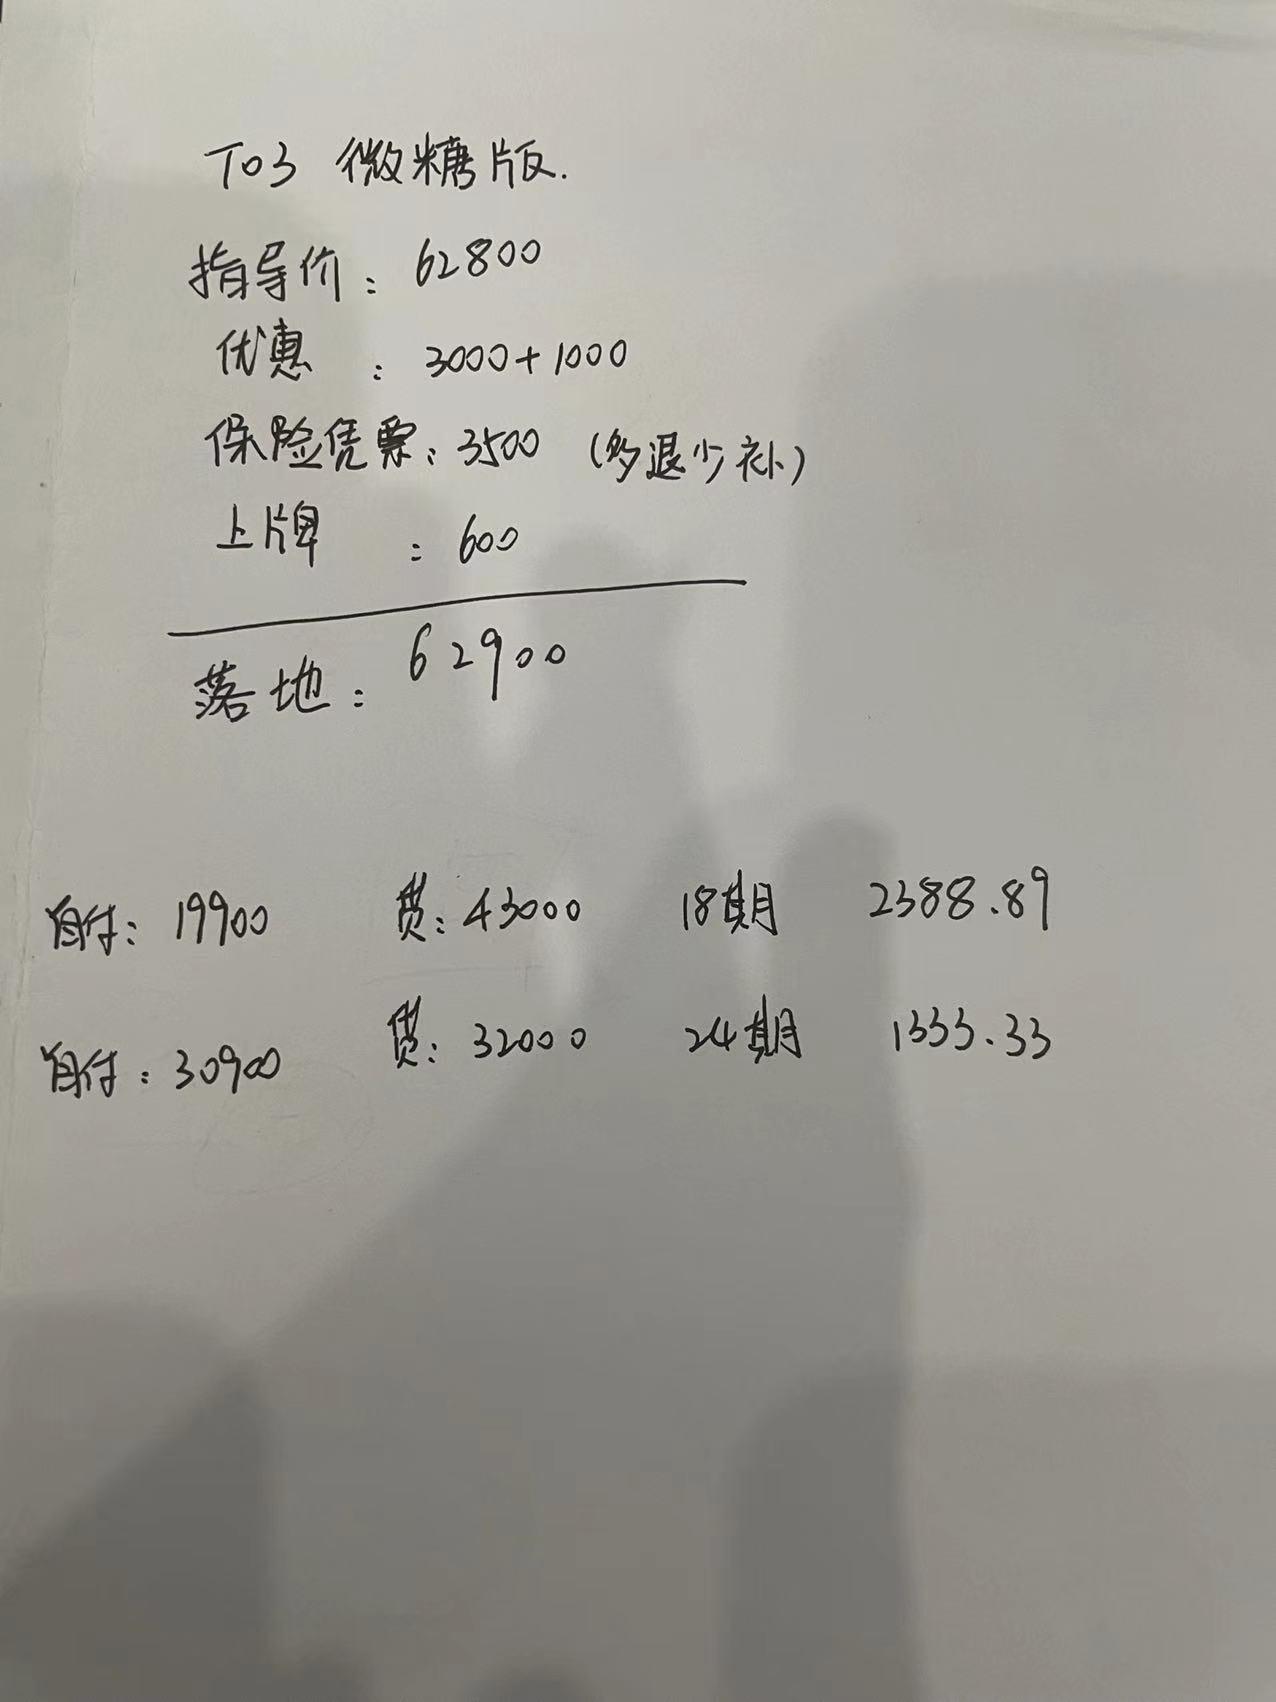 T03 微糖版.
指导价：62800
优惠：3000+1000
保险凭票：3500（多退少补）
上牌：600
落地：62900
首付：19900 贷：43000 18期 2388.89
首付：30900 贷：32000 24期 1333.33